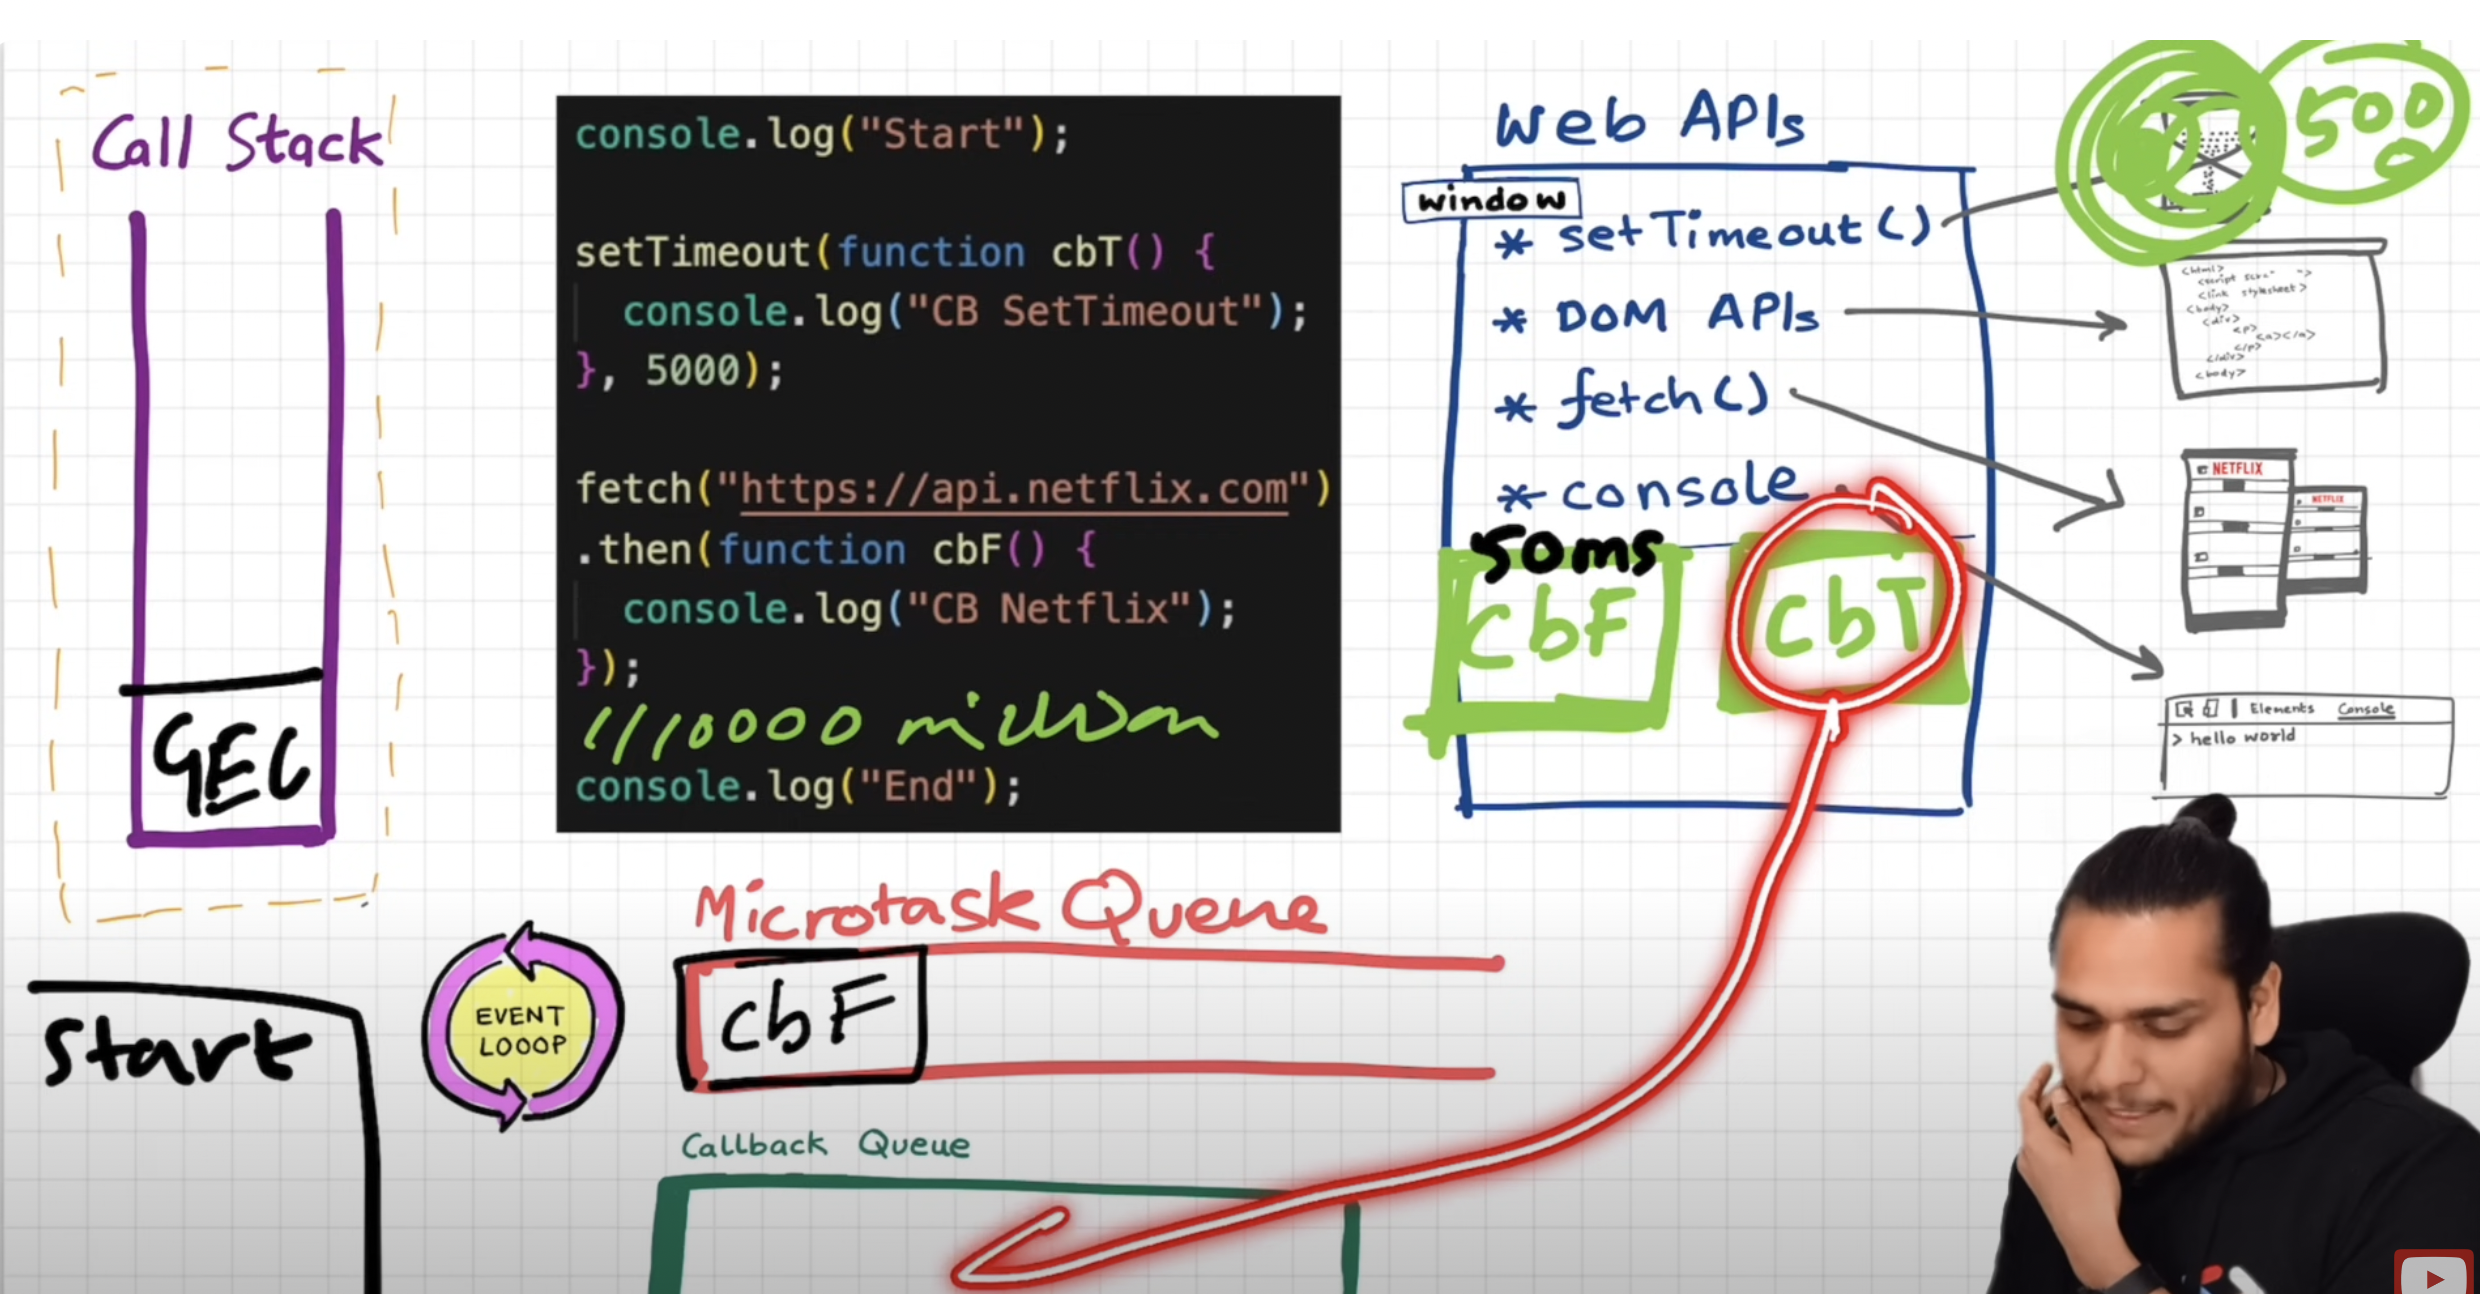 Call Stack
GEC
Start
console.log("Start");
setTimeout(function cbT() {
console.log("CB SetTimeout");
}, 5000);
fetch("https://api.netflix.com")
.then(function cbF() {
console.log("CB Netflix");
});
console.log("End");
// 10000 million
Web APIs
window
* setTimeout()
* DOM APIs
* fetch()
* console
50ms
cbF
cbT
500
0
<html>
<link stylesheet>
<body>
<div>
<p>
<a></a>
</p>
</div>
<body>
NETFLIX
NETFLIX
Elements Console
> hello world
EVENT
LOOOP
Microtask Queue
cbF
Callback Queue